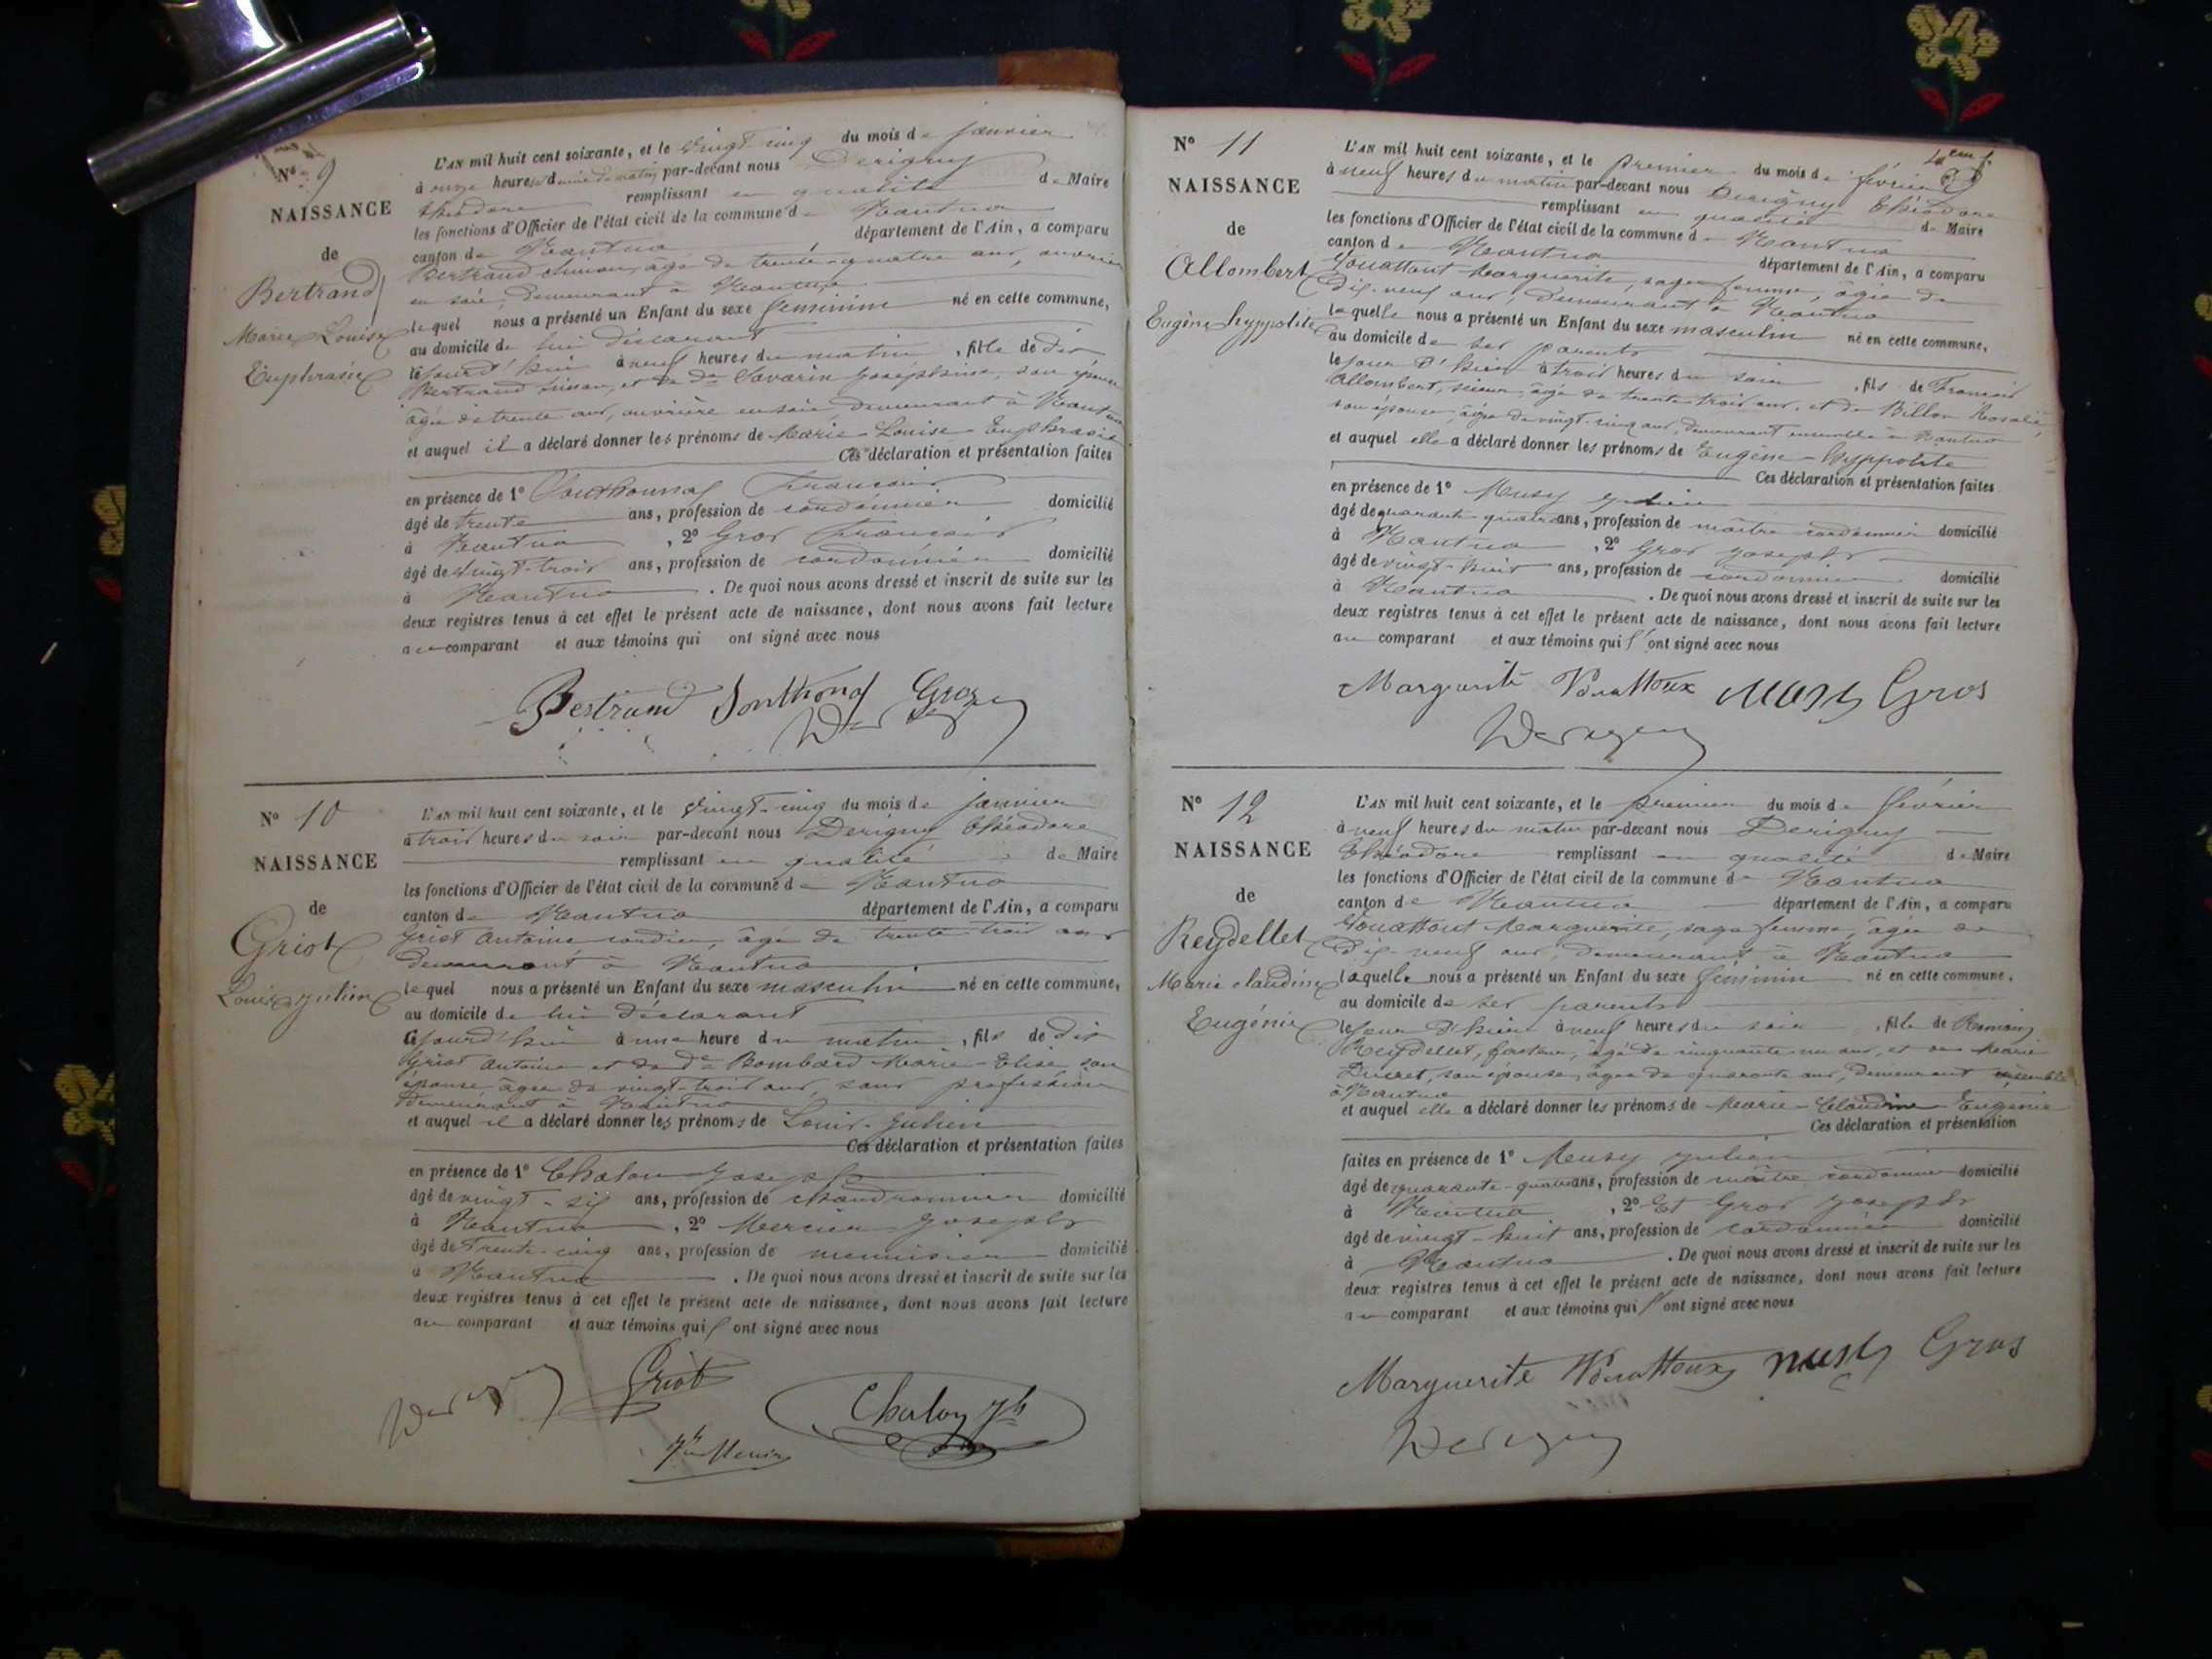 N° 9
NAISSANCE
de
Bertrand
Marie Louise
Euphrasie
L'AN mil huit cent soixante, et le vingt cinq du mois de janvier
à onze heures et demie du matin par-devant nous Derigny
théodore remplissant en qualité de Maire
les fonctions d'Officier de l'état civil de la commune de Nantua
canton de Nantua département de l'Ain, a comparu
Bertrand âgé de trente-quatre ans, ouvrier
en soie, demeurant à Nantua
lequel nous a présenté un Enfant du sexe feminin né en cette commune,
au domicile de lui déclarant
à neuf heures du matin, fille de dit
Bertrand et de de Savarin Joséphine, son épouse
âgée de trente ans, ouvrière en soie, demeurant à Nantua
et auquel il a déclaré donner les prénoms de Marie-Louise-Euphrasie
Ces déclaration et présentation faites
en présence de 1° François
âgé de trente ans, profession de cordonnier domicilié
à Nantua, 2° Gros François
âgé de vingt-trois ans, profession de cordonnier domicilié
à Nantua. De quoi nous avons dressé et inscrit de suite sur les
deux registres tenus à cet effet le présent acte de naissance, dont nous avons fait lecture
au comparant et aux témoins qui ont signé avec nous
Bertrand Gros
N° 10
NAISSANCE
de
Griot
Louis julien
L'AN mil huit cent soixante, et le vingt-cinq du mois de janvier
à trois heures du soir par-devant nous Derigny théodore
remplissant en qualité de Maire
les fonctions d'Officier de l'état civil de la commune de Nantua
canton de Nantua département de l'Ain, a comparu
Griot antoine cordier, âgé de trente trois ans
demeurant à Nantua
lequel nous a présenté un Enfant du sexe masculin né en cette commune,
au domicile de lui déclarant
à une heure du matin, fils de dit
Griot antoine et de de Bombard Marie-Elise son
épouse âgée de vingt-trois ans, sans profession
demeurant à Nantua
et auquel il a déclaré donner les prénoms de Louis-Julien
Ces déclaration et présentation faites
en présence de 1° Chalon joseph
âgé de vingt-six ans, profession de chaudronnier domicilié
à Nantua, 2° Mercier joseph
âgé de trente-cinq ans, profession de menuisier domicilié
à Nantua. De quoi nous avons dressé et inscrit de suite sur les
deux registres tenus à cet effet le présent acte de naissance, dont nous avons fait lecture
au comparant et aux témoins qui ont signé avec nous
Griot
Chalon Jh
N° 11
NAISSANCE
de
Allombert
Eugène hyppolite
L'AN mil huit cent soixante, et le premier du mois de février
à neuf heures du matin par-devant nous Derigny théodore
remplissant en qualité de Maire
les fonctions d'Officier de l'état civil de la commune de Nantua
canton de Nantua département de l'Ain, a comparu
Marguerite, sage femme, âgée de
dix-neuf ans, demeurant à Nantua
laquelle nous a présenté un Enfant du sexe masculin né en cette commune,
au domicile de ses parents
le jour d'hier à trois heures du soir, fils de François
Allombert, scieur, âgé de trente-trois ans, et de Billon Rosalie,
son épouse, âgée de vingt-cinq ans, demeurant ensemble à Nantua
et auquel elle a déclaré donner les prénoms de Eugène-hyppolite
Ces déclaration et présentation faites
en présence de 1° Musy julien
âgé de quarante-quatre ans, profession de maître cordonnier domicilié
à Nantua, 2° Gros joseph
âgé de vingt-huit ans, profession de cordonnier domicilié
à Nantua. De quoi nous avons dressé et inscrit de suite sur les
deux registres tenus à cet effet le présent acte de naissance, dont nous avons fait lecture
au comparant et aux témoins qui ont signé avec nous
Marguerite Musy Gros
N° 12
NAISSANCE
de
Reydellet
Marie claudine
Eugénie
L'AN mil huit cent soixante, et le premier du mois de février
à neuf heures du matin par-devant nous Derigny
théodore remplissant en qualité de Maire
les fonctions d'Officier de l'état civil de la commune de Nantua
canton de Nantua département de l'Ain, a comparu
Marguerite, sage femme, âgée de
dix-neuf ans, demeurant à Nantua
laquelle nous a présenté un Enfant du sexe féminin né en cette commune,
au domicile de ses parents
le jour d'hier à neuf heures du soir, fille de Romain
Reydellet, facteur, âgé de cinquante un ans, et de Marie
Ducret, son épouse, âgée de quarante ans, demeurant ensemble
à Nantua
et auquel elle a déclaré donner les prénoms de Marie-Claudine Eugénie
Ces déclaration et présentation
faites en présence de 1° Musy julien
âgé de quarante-quatre ans, profession de maître cordonnier domicilié
à Nantua, 2° Et Gros joseph
âgé de vingt-huit ans, profession de cordonnier domicilié
à Nantua. De quoi nous avons dressé et inscrit de suite sur les
deux registres tenus à cet effet le présent acte de naissance, dont nous avons fait lecture
au comparant et aux témoins qui ont signé avec nous
Marguerite Musy Gros